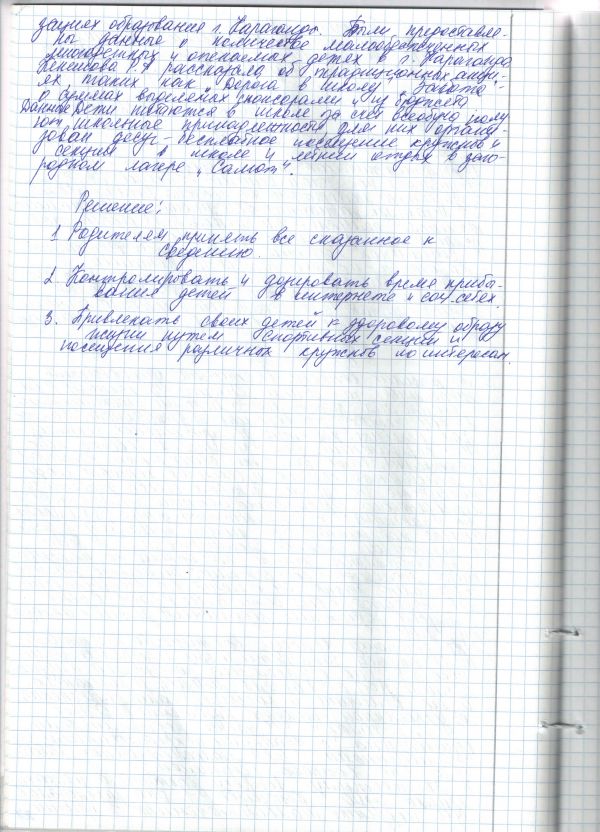 зациях образования г. Караганды. Были предоставле-
ны данные о количестве малообеспеченных
многодетных и опекаемых детях в г. Караганда
рассказала об традиционных акци-
ях таких как „Дорога в школу", „Забота",
о суммах выделяемых спонсорами и из бюджета
Данные дети питаются в школе за счёт всеобуча полу
ют школьные принадлежности, для них органи-
зован досуг- бесплатное посещение кружков и
секций в школе и летний отдых в заго-
родном лагере „Салют".
Решение:
1 Родителям принять все сказанное к
сведению.
2. Контролировать и дозировать время прибы-
вания детей в интернете и соц-сетях.
3. Привлекать своих детей к здоровому образу
жизни путем спортивных секций и
посещения различных кружков по интересам.